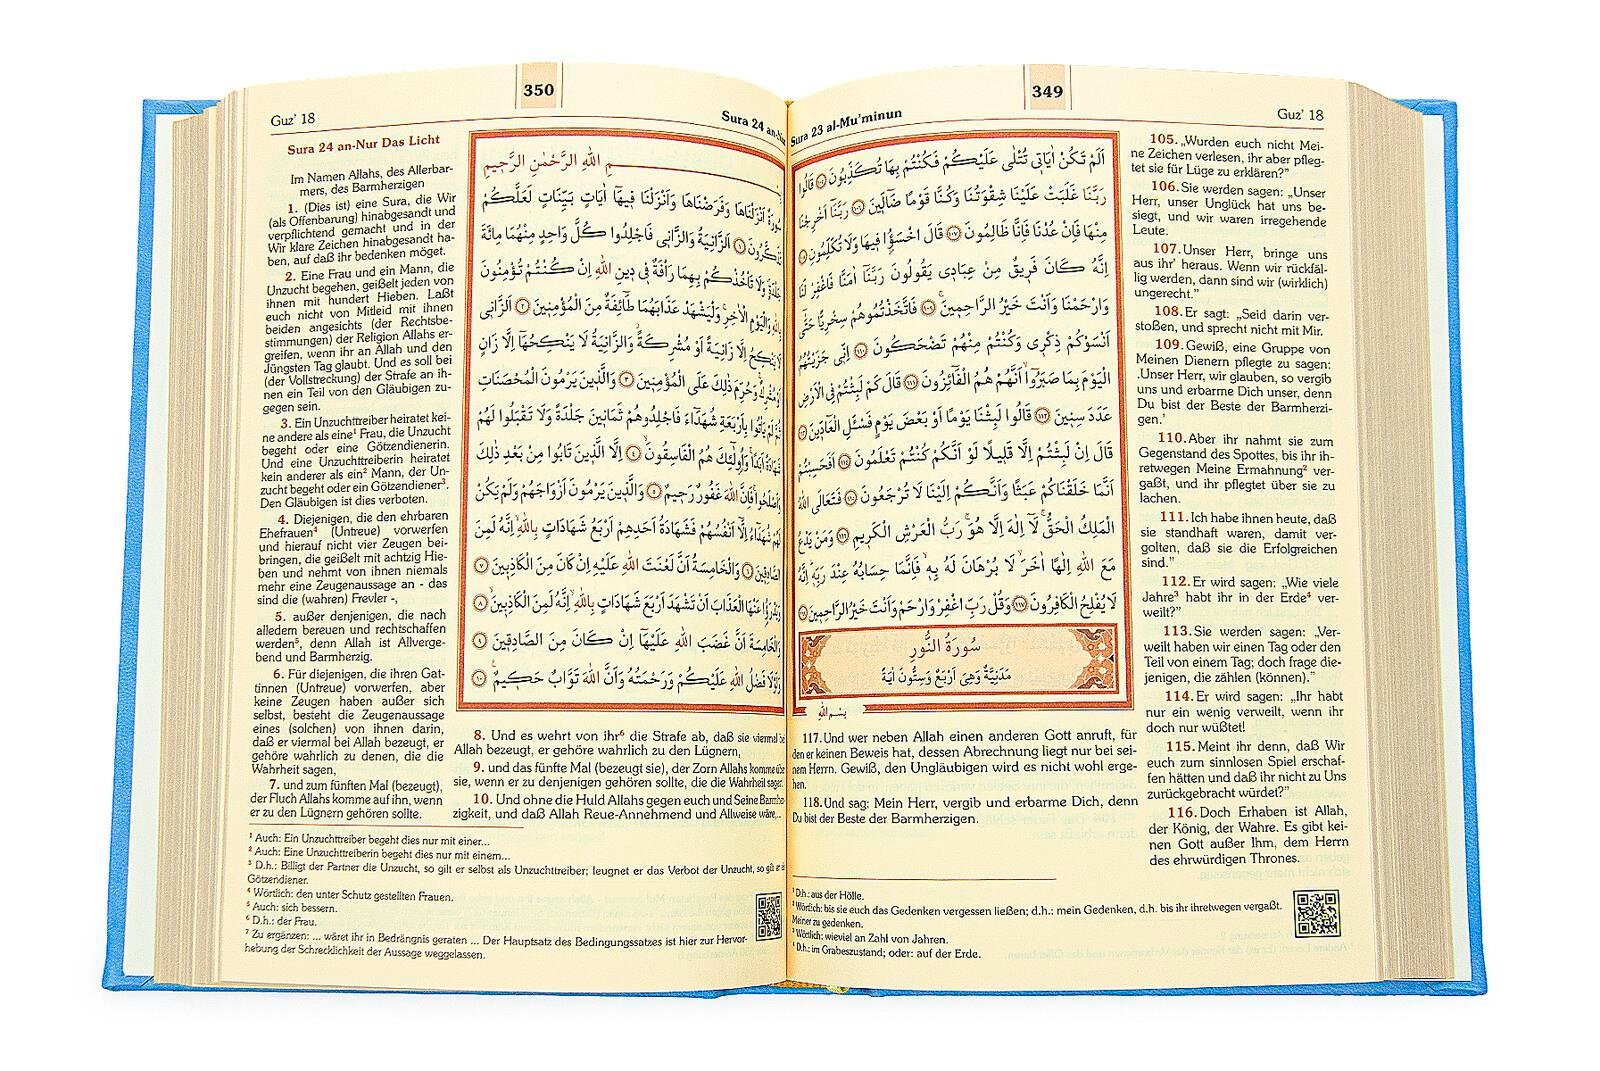 349
Guz’ 18
Sura 23 al-Mu’minun
اَلَمْ تَكُنْ اٰيَاتٖى تُتْلٰى عَلَيْكُمْ فَكُنْتُمْ بِهَا تُكَذِّبُونَ ﴿١٠٥﴾ قَالُوا
رَبَّنَا غَلَبَتْ عَلَيْنَا شِقْوَتُنَا وَكُنَّا قَوْمًا ضَالّٖينَ ﴿١٠٦﴾ رَبَّنَا اَخْرِجْنَا
مِنْهَا فَاِنْ عُدْنَا فَاِنَّا ظَالِمُونَ ﴿١٠٧﴾ قَالَ اخْسَؤُا فٖيهَا وَلَا تُكَلِّمُونِ ﴿١٠٨﴾
اِنَّهُ كَانَ فَرٖيقٌ مِنْ عِبَادٖى يَقُولُونَ رَبَّنَا اٰمَنَّا فَاغْفِرْ لَنَا
وَارْحَمْنَا وَاَنْتَ خَيْرُ الرَّاحِمٖينَ ﴿١٠٩﴾ فَاتَّخَذْتُمُوهُمْ سِخْرِيًّا حَتّٰى
اَنْسَوْكُمْ ذِكْرٖى وَكُنْتُمْ مِنْهُمْ تَضْحَكُونَ ﴿١١٠﴾ اِنّٖى جَزَيْتُهُمُ
الْيَوْمَ بِمَا صَبَرُوا اَنَّهُمْ هُمُ الْفَائِزُونَ ﴿١١١﴾ قَالَ كَمْ لَبِثْتُمْ فِى الْاَرْضِ
عَدَدَ سِنٖينَ ﴿١١٢﴾ قَالُوا لَبِثْنَا يَوْمًا اَوْ بَعْضَ يَوْمٍ فَسْـَٔلِ الْعَادّٖينَ ﴿١١٣﴾
قَالَ اِنْ لَبِثْتُمْ اِلَّا قَلٖيلًا لَوْ اَنَّكُمْ كُنْتُمْ تَعْلَمُونَ ﴿١١٤﴾ اَفَحَسِبْتُمْ
اَنَّمَا خَلَقْنَاكُمْ عَبَثًا وَاَنَّكُمْ اِلَيْنَا لَا تُرْجَعُونَ ﴿١١٥﴾ فَتَعَالَى اللّٰهُ
الْمَلِكُ الْحَقُّ لَا اِلٰهَ اِلَّا هُوَ رَبُّ الْعَرْشِ الْكَرٖيمِ ﴿١١٦﴾ وَمَنْ يَدْعُ
مَعَ اللّٰهِ اِلٰهًا اٰخَرَ لَا بُرْهَانَ لَهُ بِهٖ فَاِنَّمَا حِسَابُهُ عِنْدَ رَبِّهٖ اِنَّهُ
لَا يُفْلِحُ الْكَافِرُونَ ﴿١١٧﴾ وَقُلْ رَبِّ اغْفِرْ وَارْحَمْ وَاَنْتَ خَيْرُ الرَّاحِمٖينَ ﴿١١٨﴾
سُورَةُ النُّورِ
مَدَنِيَّةٌ وَهِىَ اَرْبَعٌ وَسِتُّونَ اٰيَةً
بِسْمِ اللّٰهِ
105. „Wurden euch nicht Mei-
ne Zeichen verlesen, ihr aber pfleg-
tet sie für Lüge zu erklären?“
106. Sie werden sagen: „Unser
Herr, unser Unglück hat uns be-
siegt, und wir waren irregehende
Leute.
107. Unser Herr, bringe uns
aus ihr¹ heraus. Wenn wir rückfäl-
lig werden, dann sind wir (wirklich)
ungerecht.“
108. Er sagt: „Seid darin ver-
stoßen, und sprecht nicht mit Mir.
109. Gewiß, eine Gruppe von
Meinen Dienern pflegte zu sagen:
‚Unser Herr, wir glauben, so vergib
uns und erbarme Dich unser, denn
Du bist der Beste der Barmherzi-
gen.’
110. Aber ihr nahmt sie zum
Gegenstand des Spottes, bis ihr ih-
retwegen Meine Ermahnung² ver-
gaßt, und ihr pflegtet über sie zu
lachen.
111. Ich habe ihnen heute, daß
sie standhaft waren, damit ver-
golten, daß sie die Erfolgreichen
sind.“
112. Er wird sagen: „Wie viele
Jahre³ habt ihr in der Erde⁴ ver-
weilt?“
113. Sie werden sagen: „Ver-
weilt haben wir einen Tag oder den
Teil von einem Tag; doch frage die-
jenigen, die zählen (können).“
114. Er wird sagen: „Ihr habt
nur ein wenig verweilt, wenn ihr
doch nur wüßtet!
115. Meint ihr denn, daß Wir
euch zum sinnlosen Spiel erschaf-
fen hätten und daß ihr nicht zu Uns
zurückgebracht würdet?“
116. Doch Erhaben ist Allah,
der König, der Wahre. Es gibt kei-
nen Gott außer Ihm, dem Herrn
des ehrwürdigen Thrones.
117. Und wer neben Allah einen anderen Gott anruft, für
den er keinen Beweis hat, dessen Abrechnung liegt nur bei sei-
nem Herrn. Gewiß, den Ungläubigen wird es nicht wohl erge-
hen.
118. Und sag: Mein Herr, vergib und erbarme Dich, denn
Du bist der Beste der Barmherzigen.
¹ D.h.: aus der Hölle.
² Wörtlich: bis sie euch das Gedenken vergessen ließen; d.h.: mein Gedenken, d.h. bis ihr ihretwegen vergaßt.
Meiner zu gedenken.
³ Wörtlich: wieviel an Zahl von Jahren.
⁴ D.h.: im Grabeszustand; oder: auf der Erde.
350
Guz’ 18
Sura 24 an-Nur
Sura 24 an-Nur Das Licht
Im Namen Allahs, des Allerbar-
mers, des Barmherzigen
1. (Dies ist) eine Sura, die Wir
(als Offenbarung) hinabgesandt und
verpflichtend gemacht und in der
Wir klare Zeichen hinabgesandt ha-
ben, auf daß ihr bedenken möget.
2. Eine Frau und ein Mann, die
Unzucht begehen, geißelt jeden von
ihnen mit hundert Hieben. Laßt
euch nicht von Mitleid mit ihnen
beiden angesichts (der Rechtsbe-
stimmungen) der Religion Allahs er-
greifen, wenn ihr an Allah und den
Jüngsten Tag glaubt. Und es soll bei
(der Vollstreckung) der Strafe an ih-
nen ein Teil von den Gläubigen zu-
gegen sein.
3. Ein Unzuchttreiber heiratet kei-
ne andere als eine¹ Frau, die Unzucht
begeht oder eine Götzendienerin.
Und eine Unzuchttreiberin heiratet
kein anderer als ein² Mann, der Un-
zucht begeht oder ein Götzendiener³.
Den Gläubigen ist dies verboten.
4. Diejenigen, die den ehrbaren
Ehefrauen⁴ (Untreue) vorwerfen
und hierauf nicht vier Zeugen bei-
bringen, die geißelt mit achtzig Hie-
ben und nehmt von ihnen niemals
mehr eine Zeugenaussage an - das
sind die (wahren) Frevler -,
5. außer denjenigen, die nach
alledem bereuen und rechtschaffen
werden⁵, denn Allah ist Allverge-
bend und Barmherzig.
6. Für diejenigen, die ihren Gat-
tinnen (Untreue) vorwerfen, aber
keine Zeugen haben außer sich
selbst, besteht die Zeugenaussage
eines (solchen) von ihnen darin,
daß er viermal bei Allah bezeugt, er
gehöre wahrlich zu denen, die die
Wahrheit sagen,
7. und zum fünften Mal (bezeugt),
der Fluch Allahs komme auf ihn, wenn
er zu den Lügnern gehören sollte.
مِ اللّٰهِ الرَّحْمٰنِ الرَّحٖيمِ
سُورَةٌ اَنْزَلْنَاهَا وَفَرَضْنَاهَا وَاَنْزَلْنَا فٖيهَا اٰيَاتٍ بَيِّنَاتٍ لَعَلَّكُمْ
تَذَكَّرُونَ ﴿١﴾ اَلزَّانِيَةُ وَالزَّانٖى فَاجْلِدُوا كُلَّ وَاحِدٍ مِنْهُمَا مِائَةَ
جَلْدَةٍ وَلَا تَأْخُذْكُمْ بِهِمَا رَأْفَةٌ فٖى دٖينِ اللّٰهِ اِنْ كُنْتُمْ تُؤْمِنُونَ
بِاللّٰهِ وَالْيَوْمِ الْاٰخِرِ وَلْيَشْهَدْ عَذَابَهُمَا طَائِفَةٌ مِنَ الْمُؤْمِنٖينَ ﴿٢﴾ اَلزَّانٖى
لَا يَنْكِحُ اِلَّا زَانِيَةً اَوْ مُشْرِكَةً وَالزَّانِيَةُ لَا يَنْكِحُهَا اِلَّا زَانٍ
اَوْ مُشْرِكٌ وَحُرِّمَ ذٰلِكَ عَلَى الْمُؤْمِنٖينَ ﴿٣﴾ وَالَّذٖينَ يَرْمُونَ الْمُحْصَنَاتِ
ثُمَّ لَمْ يَأْتُوا بِاَرْبَعَةِ شُهَدَاءَ فَاجْلِدُوهُمْ ثَمَانٖينَ جَلْدَةً وَلَا تَقْبَلُوا لَهُمْ
شَهَادَةً اَبَدًا وَاُولٰئِكَ هُمُ الْفَاسِقُونَ ﴿٤﴾ اِلَّا الَّذٖينَ تَابُوا مِنْ بَعْدِ ذٰلِكَ
وَاَصْلَحُوا فَاِنَّ اللّٰهَ غَفُورٌ رَحٖيمٌ ﴿٥﴾ وَالَّذٖينَ يَرْمُونَ اَزْوَاجَهُمْ وَلَمْ يَكُنْ
لَهُمْ شُهَدَاءُ اِلَّا اَنْفُسُهُمْ فَشَهَادَةُ اَحَدِهِمْ اَرْبَعُ شَهَادَاتٍ بِاللّٰهِ اِنَّهُ لَمِنَ
الصَّادِقٖينَ ﴿٦﴾ وَالْخَامِسَةُ اَنَّ لَعْنَتَ اللّٰهِ عَلَيْهِ اِنْ كَانَ مِنَ الْكَاذِبٖينَ ﴿٧﴾
وَيَدْرَؤُا عَنْهَا الْعَذَابَ اَنْ تَشْهَدَ اَرْبَعَ شَهَادَاتٍ بِاللّٰهِ اِنَّهُ لَمِنَ الْكَاذِبٖينَ ﴿٨﴾
وَالْخَامِسَةَ اَنَّ غَضَبَ اللّٰهِ عَلَيْهَا اِنْ كَانَ مِنَ الصَّادِقٖينَ ﴿٩﴾
وَلَوْلَا فَضْلُ اللّٰهِ عَلَيْكُمْ وَرَحْمَتُهُ وَاَنَّ اللّٰهَ تَوَّابٌ حَكٖيمٌ ﴿١٠﴾
8. Und es wehrt von ihr⁶ die Strafe ab, daß sie viermal bei
Allah bezeugt, er gehöre wahrlich zu den Lügnern,
9. und das fünfte Mal (bezeugt sie), der Zorn Allahs komme über
sie, wenn er zu denjenigen gehören sollte, die die Wahrheit sagen.
10. Und ohne die Huld Allahs gegen euch und Seine Barmher-
zigkeit, und daß Allah Reue-Annehmend und Allweise wäre,..
¹ Auch: Ein Unzuchttreiber begeht dies nur mit einer...
² Auch: Eine Unzuchttreiberin begeht dies nur mit einem...
³ D.h.: Billigt der Partner die Unzucht, so gilt er selbst als Unzuchttreiber; leugnet er das Verbot der Unzucht, so gilt er als
Götzendiener.
⁴ Wörtlich: den unter Schutz gestellten Frauen.
⁵ Auch: sich bessern.
⁶ D.h.: der Frau.
⁷ Zu ergänzen: ... wäret ihr in Bedrängnis geraten ... Der Hauptsatz des Bedingungssatzes ist hier zur Hervor-
hebung der Schrecklichkeit der Aussage weggelassen.